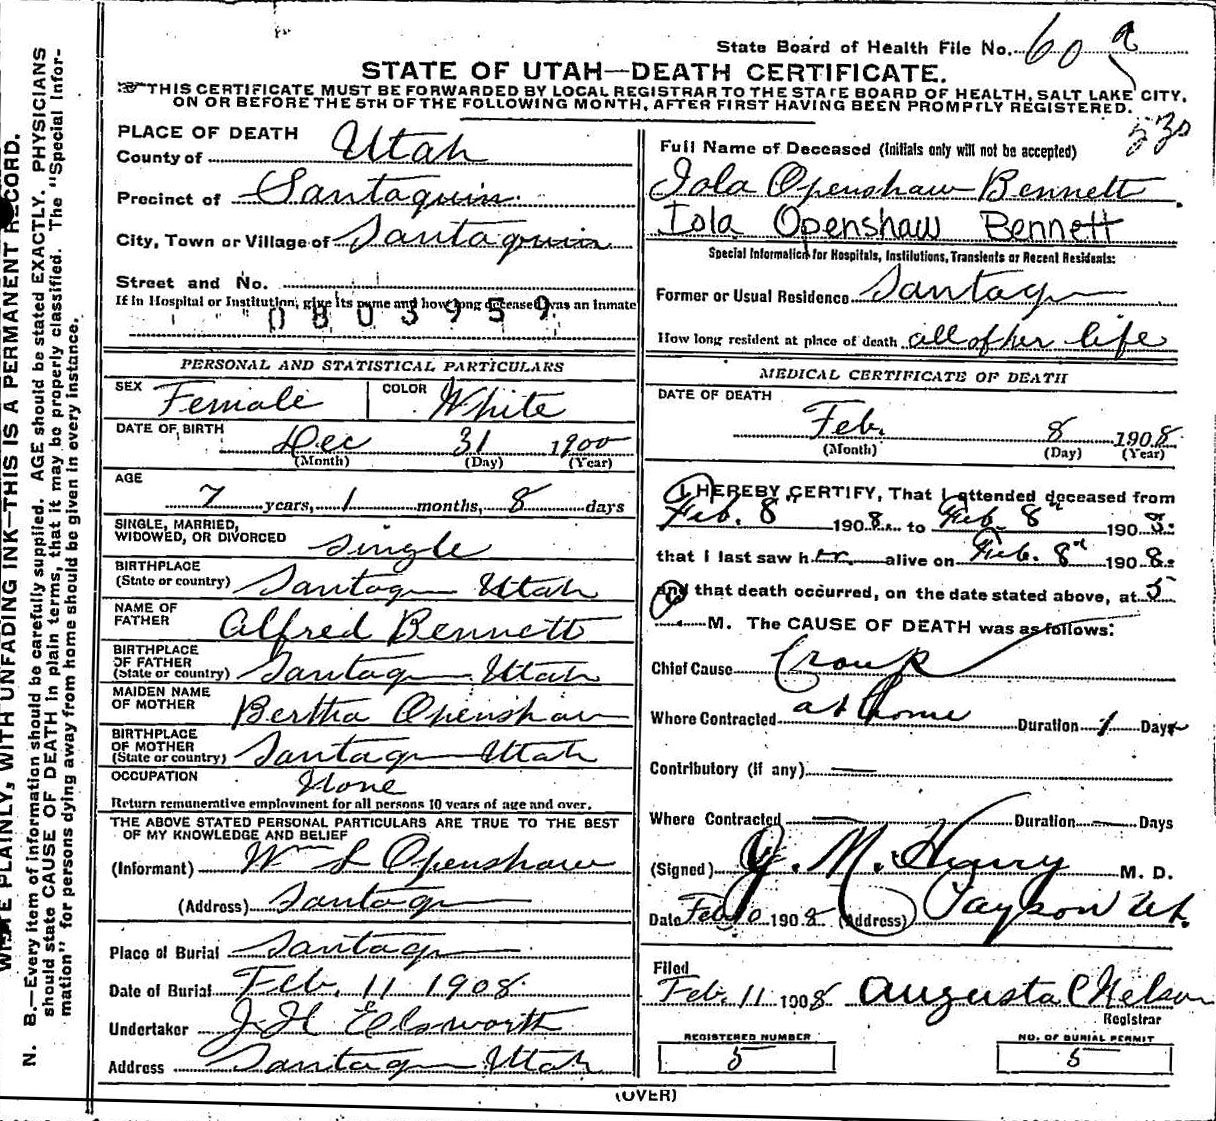 State Board of Health File No. 60 a
STATE OF UTAH—DEATH CERTIFICATE.
THIS CERTIFICATE MUST BE FORWARDED BY LOCAL REGISTRAR TO THE STATE BOARD OF HEALTH, SALT LAKE CITY,
ON OR BEFORE THE 5TH OF THE FOLLOWING MONTH, AFTER FIRST HAVING BEEN PROMPTLY REGISTERED.
N. B.—Every item of information should be carefully supplied. AGE should be stated EXACTLY. PHYSICIANS
should state CAUSE OF DEATH in plain terms, that it may be properly classified. The "Special Infor-
mation" for persons dying away from home should be given in every instance.
PLAINLY, WITH UNFADING INK—THIS IS A PERMANENT RECORD.
PLACE OF DEATH
County of Utah
Precinct of Santaquin
City, Town or Village of Santaquin
Street and No.
If in Hospital or Institution, give its name and how long deceased was an inmate
0803959
PERSONAL AND STATISTICAL PARTICULARS
SEX Female COLOR White
DATE OF BIRTH Dec 31 1900
(Month) (Day) (Year)
AGE
7 years, 1 months, 8 days
SINGLE, MARRIED,
WIDOWED, OR DIVORCED Single
BIRTHPLACE
(State or country) Santaqu Utah
NAME OF
FATHER Alfred Bennett
BIRTHPLACE
OF FATHER
(State or country) Santaqu Utah
MAIDEN NAME
OF MOTHER Bertha Openshaw
BIRTHPLACE
OF MOTHER
(State or country) Santaqu Utah
OCCUPATION None
Return remunerative employment for all persons 10 years of age and over.
THE ABOVE STATED PERSONAL PARTICULARS ARE TRUE TO THE BEST
OF MY KNOWLEDGE AND BELIEF
(Informant) Wm S Openshaw
(Address) Santaqu
Place of Burial Santaqu
Date of Burial Feb. 11 1908
Undertaker J H Ellsworth
Address Santaqu Utah
530
Full Name of Deceased (Initials only will not be accepted)
Iola Openshaw Bennett.
Iola Openshaw Bennett
Special Information for Hospitals, Institutions, Transients or Recent Residents:
Former or Usual Residence Santaqu
How long resident at place of death all of her life
MEDICAL CERTIFICATE OF DEATH
DATE OF DEATH
Feb. 8 1908
(Month) (Day) (Year)
I HEREBY CERTIFY, That I attended deceased from
Feb. 8" 1908 to Feb. 8" 1908
that I last saw her alive on Feb. 8" 1908
and that death occurred, on the date stated above, at 5
M. The CAUSE OF DEATH was as follows:
Chief Cause Croup
Where Contracted at home Duration 1 Days
Contributory (if any)
Where Contracted Duration Days
(Signed) J. M. Henry M. D.
Date Feb 10 1908 (Address) Payson Ut.
Filed
Feb. 11 1908 Augusta C Nelson
Registrar
REGISTERED NUMBER
5
NO. OF BURIAL PERMIT
5
(OVER)